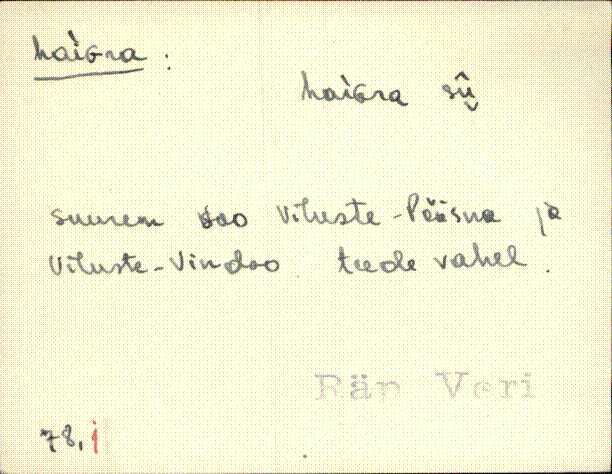 haiɢʀa :
haiɢʀa sû̬
suurem soo Viluste-Pöösna ja
Viluste-Vindso teede vahel.
Räp Veri
78, i